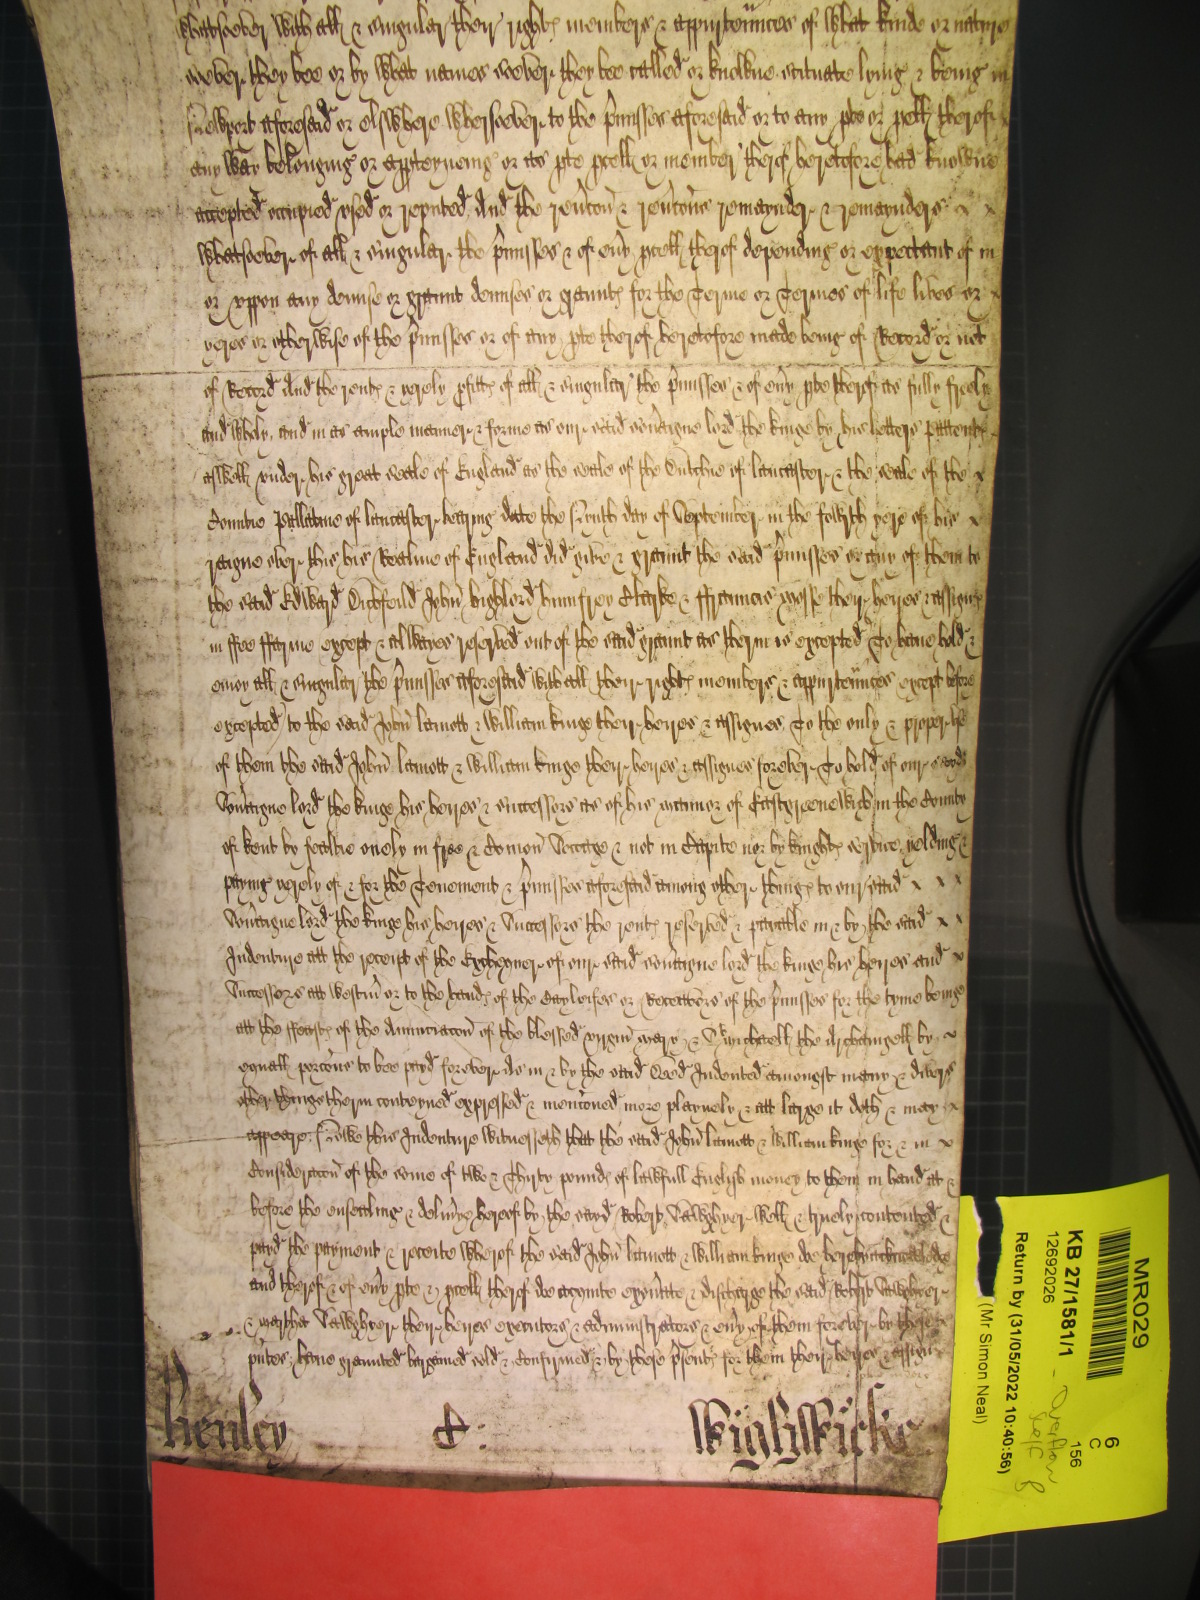 whatsoever with all & singular their rights members & appurtennces of what kinde or nature
soever they bee or by what names soever they bee called or knowne scituate lying & being in
Newport aforesaid or elswhere whersoever to the p̃misses aforesaid or to any pte or pcell therof x
any way belonging or appteyneing or as pte pcell or member therof heretofore had knowne
accepted occupied vsed or reputed And the rẽv̉con & rẽv̉cons remaynder & remaynders x x
whatsoever of all & singular the p̃misses & of eũy pcell therof depending or expectant of in
or vppon any demise or graunt demises or graunts for the Terme or Termes of life lives or x
yeres or otherwise of the p̃misses or of any pte therof heretofore made being of Record or not
of Record And the rents & yerely pfitts of all & singular the p̃misses & of eũy pte therof as fully freely
and wholy and in as ample manner & forme as our said sov̉aigne lord the kinge by his letters Pattents
aswell vnder his great seale of England as the seale of the Dutchie of Lancaster & the seale of the x
Countie Pallatine of Lancaster bearing date the Ninth day of September in the fowrth yere of his x
raigne over this his Realme of England did give & graunt the said p̃misses or any of them to
the said Edward Duffeild John Highlord humfrey Clarke & ffrauncis mosse their heires & assignes
in ffee ffarme except & allwayes reserved out of the said graunt as therin is excepted To have hold &
enioy all & singular the p̃misses aforesaid with all their rights members & appurtennces except before
excepted to the said John Lamott & William kinge their heires & assignes To the only & proper vse
of them the said John Lamott & William kinge their heires & assignes forever To hold of our said
Sov̉aigne lord the kinge his heires & successors as of his mannor of Eastgreenewich in the County
of kent by fealtie onely in free & Comon Soccage & not in Capite nor by knights service yelding &
paying yerely of & for the Tenement & p̃misses aforesaid among other things to our said x x x
Sov̉aigne lord the kinge his heires & Successors the rents reserved & payable in & by the said x x
Indenture att the receipt of the Exchequer of our said sov̉aigne lord the kinge his heires and x
Successors att westm̃ or to the hands of the Bayleifes or Receavors of the p̃misses for the tyme beinge
att the ffeasts of the Annunciacon of the blessed virgin mary & St michaell the Archangell by x
equall porcons to bee payd forever As in & by the said Deed Indented amongst many & divers
other things therin conteyned expressed & menconed more playnely & att large it doth & may x
appeare: Nowe this Indenture witnesseth that the said John Lamott & William kinge for & in x
Consideracon of the some of two & Thirty pounds of lawfull English money to them in hand at &
before the ensealing & deliv̉ye hereof by the sayd Robert Vawghyer well & truely contented &
payd the payment & receite wherof the said John Lamott & William kinge doe hereby acknowledge
and therof & of eũy pte & pcell therof doe acquite exon̉ate & discharge the said Robert Vawghyer
& martha Vawghyer their heires executors & administrators & eũy of them forever by these
p̃ntes have graunted bargained sold & Confirmed & by these p̃sents for them their heires & assignes
Henley & : Wightwicke
MR029
KB 27/1581/1
12692026
Return by (31/05/2022 10:40:56)
(Mr Simon Neal)
6
C
156